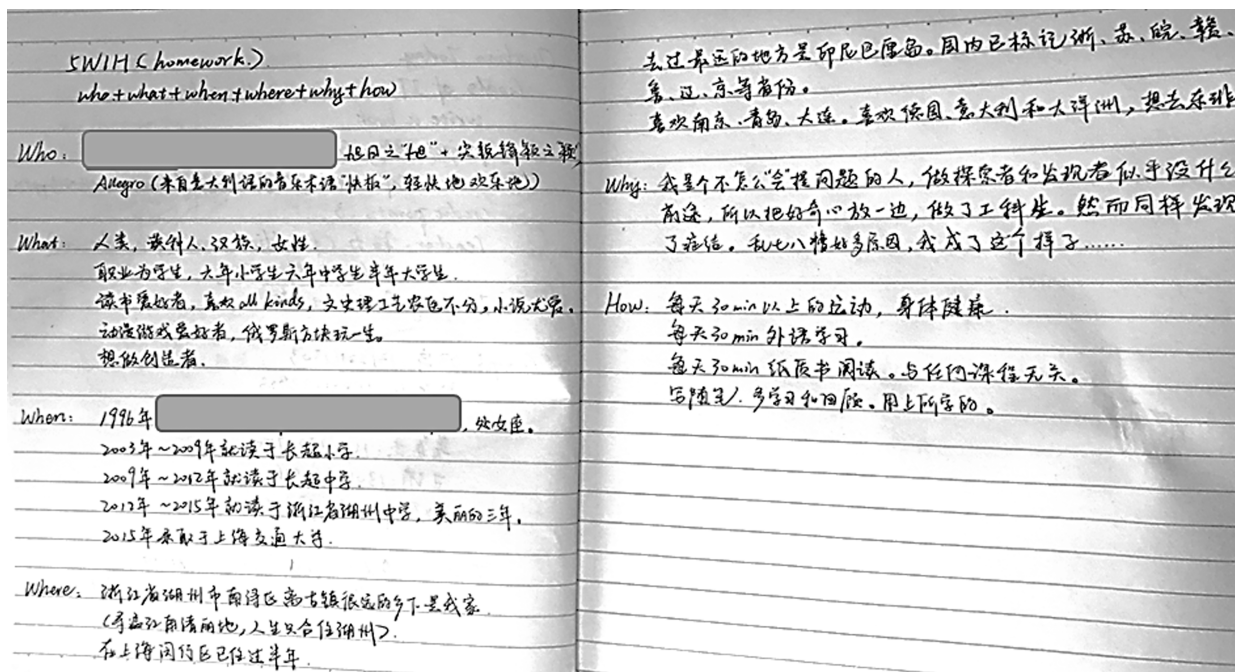 5W1H (homework.)
who+what+when+where+why+how
Who: 旭日之"旭"+尖锐锋颖之颖
Allegro (来自意大利语的音乐术语"快板", 轻快地欢乐地))
What: 人类, 黄种人, 汉族, 女性.
职业为学生, 六年小学生六年中学生半年大学生.
读书爱好者, 喜欢all kinds, 文史理工艺农医不分, 小说尤爱。
动漫游戏爱好者, 俄罗斯方块玩一生。
想做创造者.
When: 1996年 , 处女座。
2003年~2009年就读于长超小学.
2009年~2012年就读于长超中学.
2012年~2015年就读于浙江省湖州中学, 美丽的三年。
2015年录取于上海交通大学.
Where: 浙江省湖州市南浔区 镇很远的乡下是我家.
(寻遍江南清丽地, 人生只合住湖州).
在上海闵行区已住过半年.
去过最远的地方是印尼巴厘岛。国内已标记浙、苏、皖、赣、
鲁、辽、京等省份。
喜欢南京、青岛、大连。喜欢德国、意大利和大洋洲, 想去
Why: 我是个不怎么"会"提问题的人, 做探索者和发现者似乎没什么
前途, 所以把好奇心放一边, 做了工科生。然而同样发现
了症结。乱七八糟好多原因, 我成了这个样子……
How: 每天30min以上的运动, 身体健康.
每天30min外语学习。
每天30min纸质书阅读。与任何课程无关。
写随笔. 多学习和回顾。用上所学的。